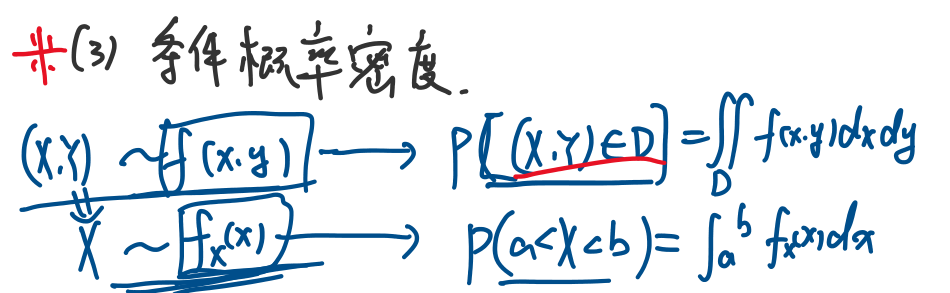 ※(3) 条件概率密度.
(X,Y) ~ f(x,y) → P[(X,Y)∈D] = ∬_D f(x,y)dxdy
⇓
X ~ f_X(x) → P(a<X<b) = ∫_a^b f_X(x)dx